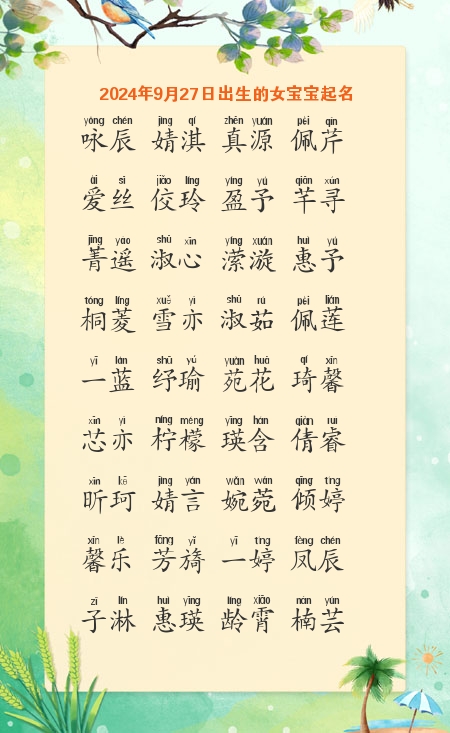 2024年9月27日出生的女宝宝起名
yǒng chén jìng qí zhēn yuán pèi qín
咏辰 婧淇 真源 佩芹
ài sī jiǎo líng yíng yú qiān xún
爱丝 佼玲 盈予 芊寻
jīng yáo shū xīn yíng xuán huì yú
菁遥 淑心 潆漩 惠予
tóng líng xuě yì shū rú pèi lián
桐菱 雪亦 淑茹 佩莲
yī lán shū yú yuàn huā qí xīn
一蓝 纾瑜 苑花 琦馨
xīn yì níng méng yīng hán qiàn ruì
芯亦 柠檬 瑛含 倩睿
xīn kē jìng yán wǎn wǎn qīng tíng
昕珂 婧言 婉菀 倾婷
xīn lè fāng yǐ yī tíng fèng chén
馨乐 芳旖 一婷 凤辰
zǐ lín huì yīng líng xiāo nán yún
子淋 惠瑛 龄霄 楠芸